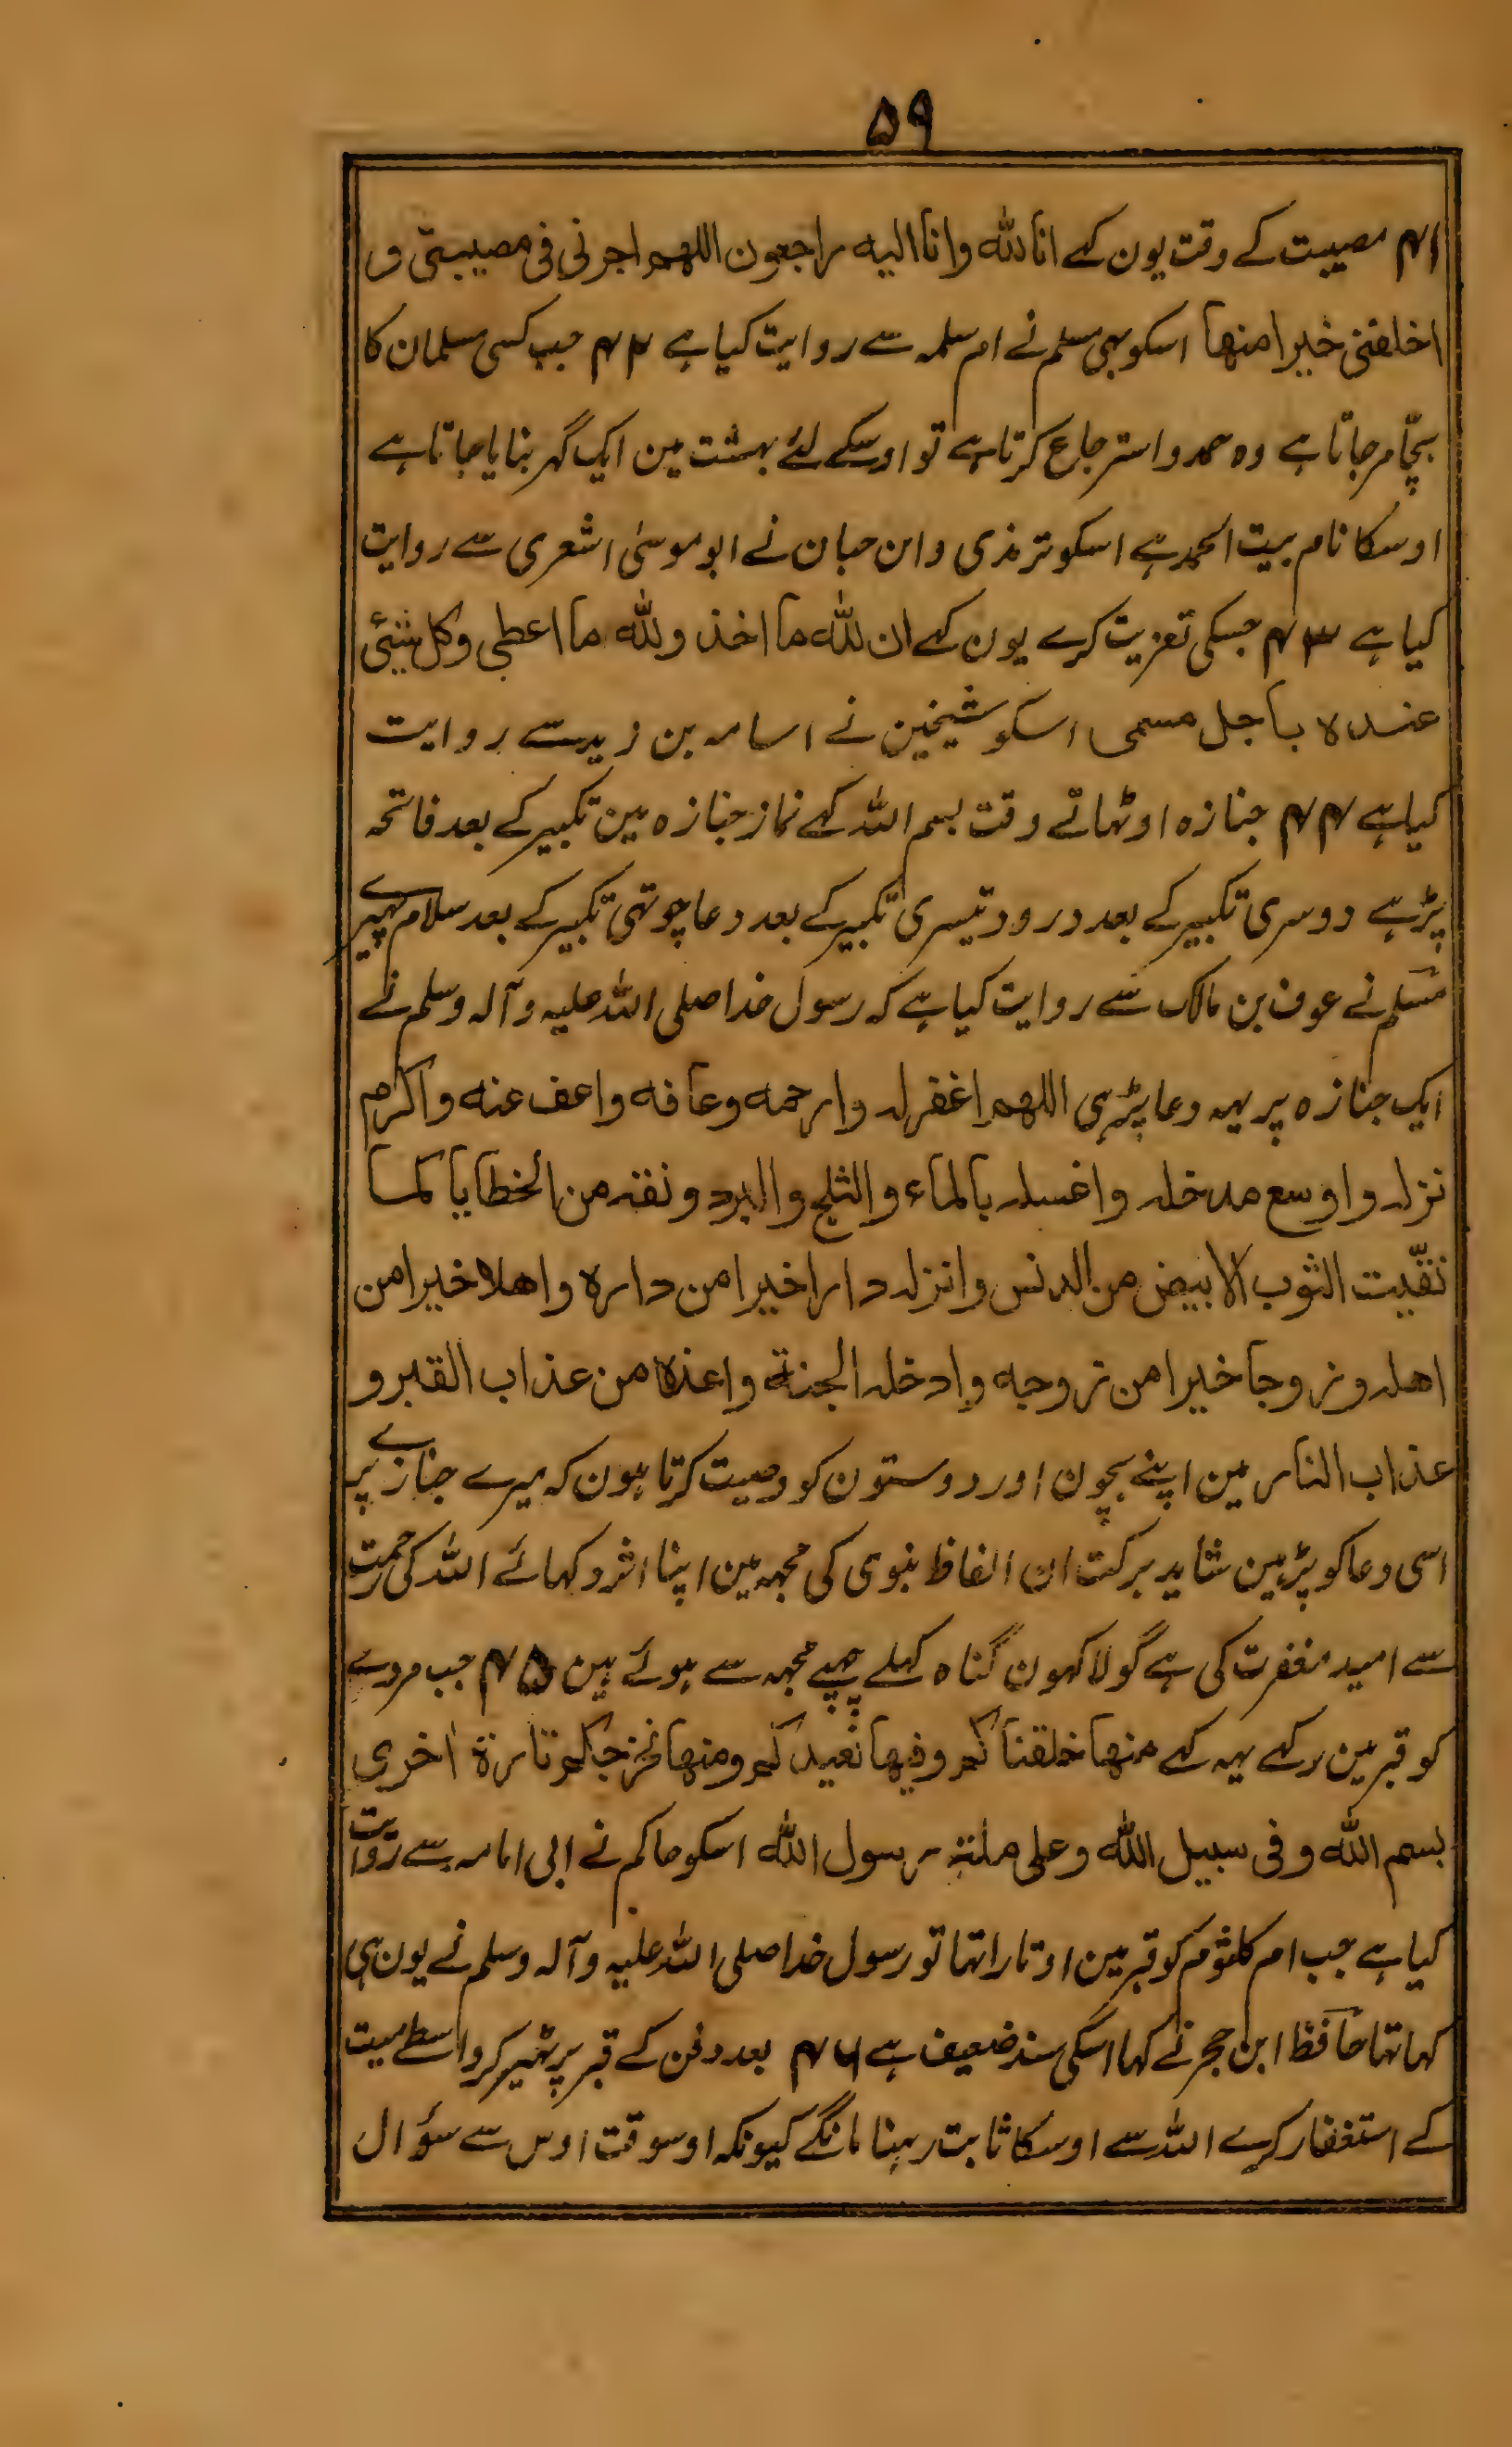 ۵۹
۴۱ مصیبت کے وقت یون کہے انا للہ وانا الیہ راجعون اللھم اجرنی فی مصیبتی و
اخلفنی خیرا منھا اسکو بہی مسلم نے ام سلمہ سے روایت کیا ہے ۴۲ جب کسی مسلمان کا
بچّا مرجاتا ہے وہ حمد و استرجاع کرتا ہے تو اوسکے لئے بہشت مین ایک گہر بنایا جاتا ہے
اوسکا نام بیت الحمد ہے اسکو ترمذی و ابن حبان نے ابو موسیٰ اشعری سے روایت
کیا ہے ۴۳ جسکی تعزیت کرے یون کہے ان للہ ما اخذ وللہ ما اعطی وکل شیئی
عندہ باجل مسمی اسکو شیخین نے اسامہ بن زید سے روایت
کیا ہے ۴۴ جنازہ اوٹہاتے وقت بسم اللہ کہے نماز جنازہ مین تکبیر کے بعد فاتحہ
پڑہے دوسری تکبیر کے بعد درود تیسری تکبیر کے بعد دعا چوتہی تکبیر کے بعد سلام پہیرے
مسلم نے عوف بن مالک سے روایت کیا ہے کہ رسول خدا صلی اللہ علیہ وآلہ وسلم نے
ایک جنازہ پر یہہ دعا پڑہی اللھم اغفرلہ وارحمہ وعافہ واعف عنہ واکرم
نزلہ واوسع مدخلہ واغسلہ بالماء والثلج والبرد ونقہ من الخطایا کما
نقّیت الثوب الابیض من الدنس وانزلہ دارا خیرا من دارہ واھلا خیرا من
اھلہ وزوجا خیرا من زوجہ وادخلہ الجنة واعذہ من عذاب القبر و
عذاب النار مین اپنے بچون اور دوستون کو وصیت کرتا ہون کہ میرے جنازے پر
اسی دعا کو پڑہین شاید برکت ان الفاظ نبوی کی مجہہ مین اپنا اثر دکہائے اللہ کی رحمت
سے امید مغفرت کی ہے گو لاکہون گناہ کہلے چہپے مجہہ سے ہوئے ہین ۴۵ جب مردے
کو قبر مین رکہے یہہ کہے منھا خلقناکم وفیھا نعیدکم ومنھا نخرجکم تارة اخری
بسم اللہ وفی سبیل اللہ وعلی ملة رسول اللہ اسکو حاکم نے ابی امامہ سے روایت
کیا ہے جب ام کلثوم کو قبر مین اوتارا تہا تو رسول خدا صلی اللہ علیہ وآلہ وسلم نے یون ہی
کہا تہا حافظ ابن حجر نے کہا اسکی سند ضعیف ہے ۴۶ بعد دفن کے قبر پر ٹہیر کر واسطے میت
کے استغفار کرے اللہ سے اوسکا ثابت رہنا مانگے کیونکہ اوسوقت اوس سے سؤال